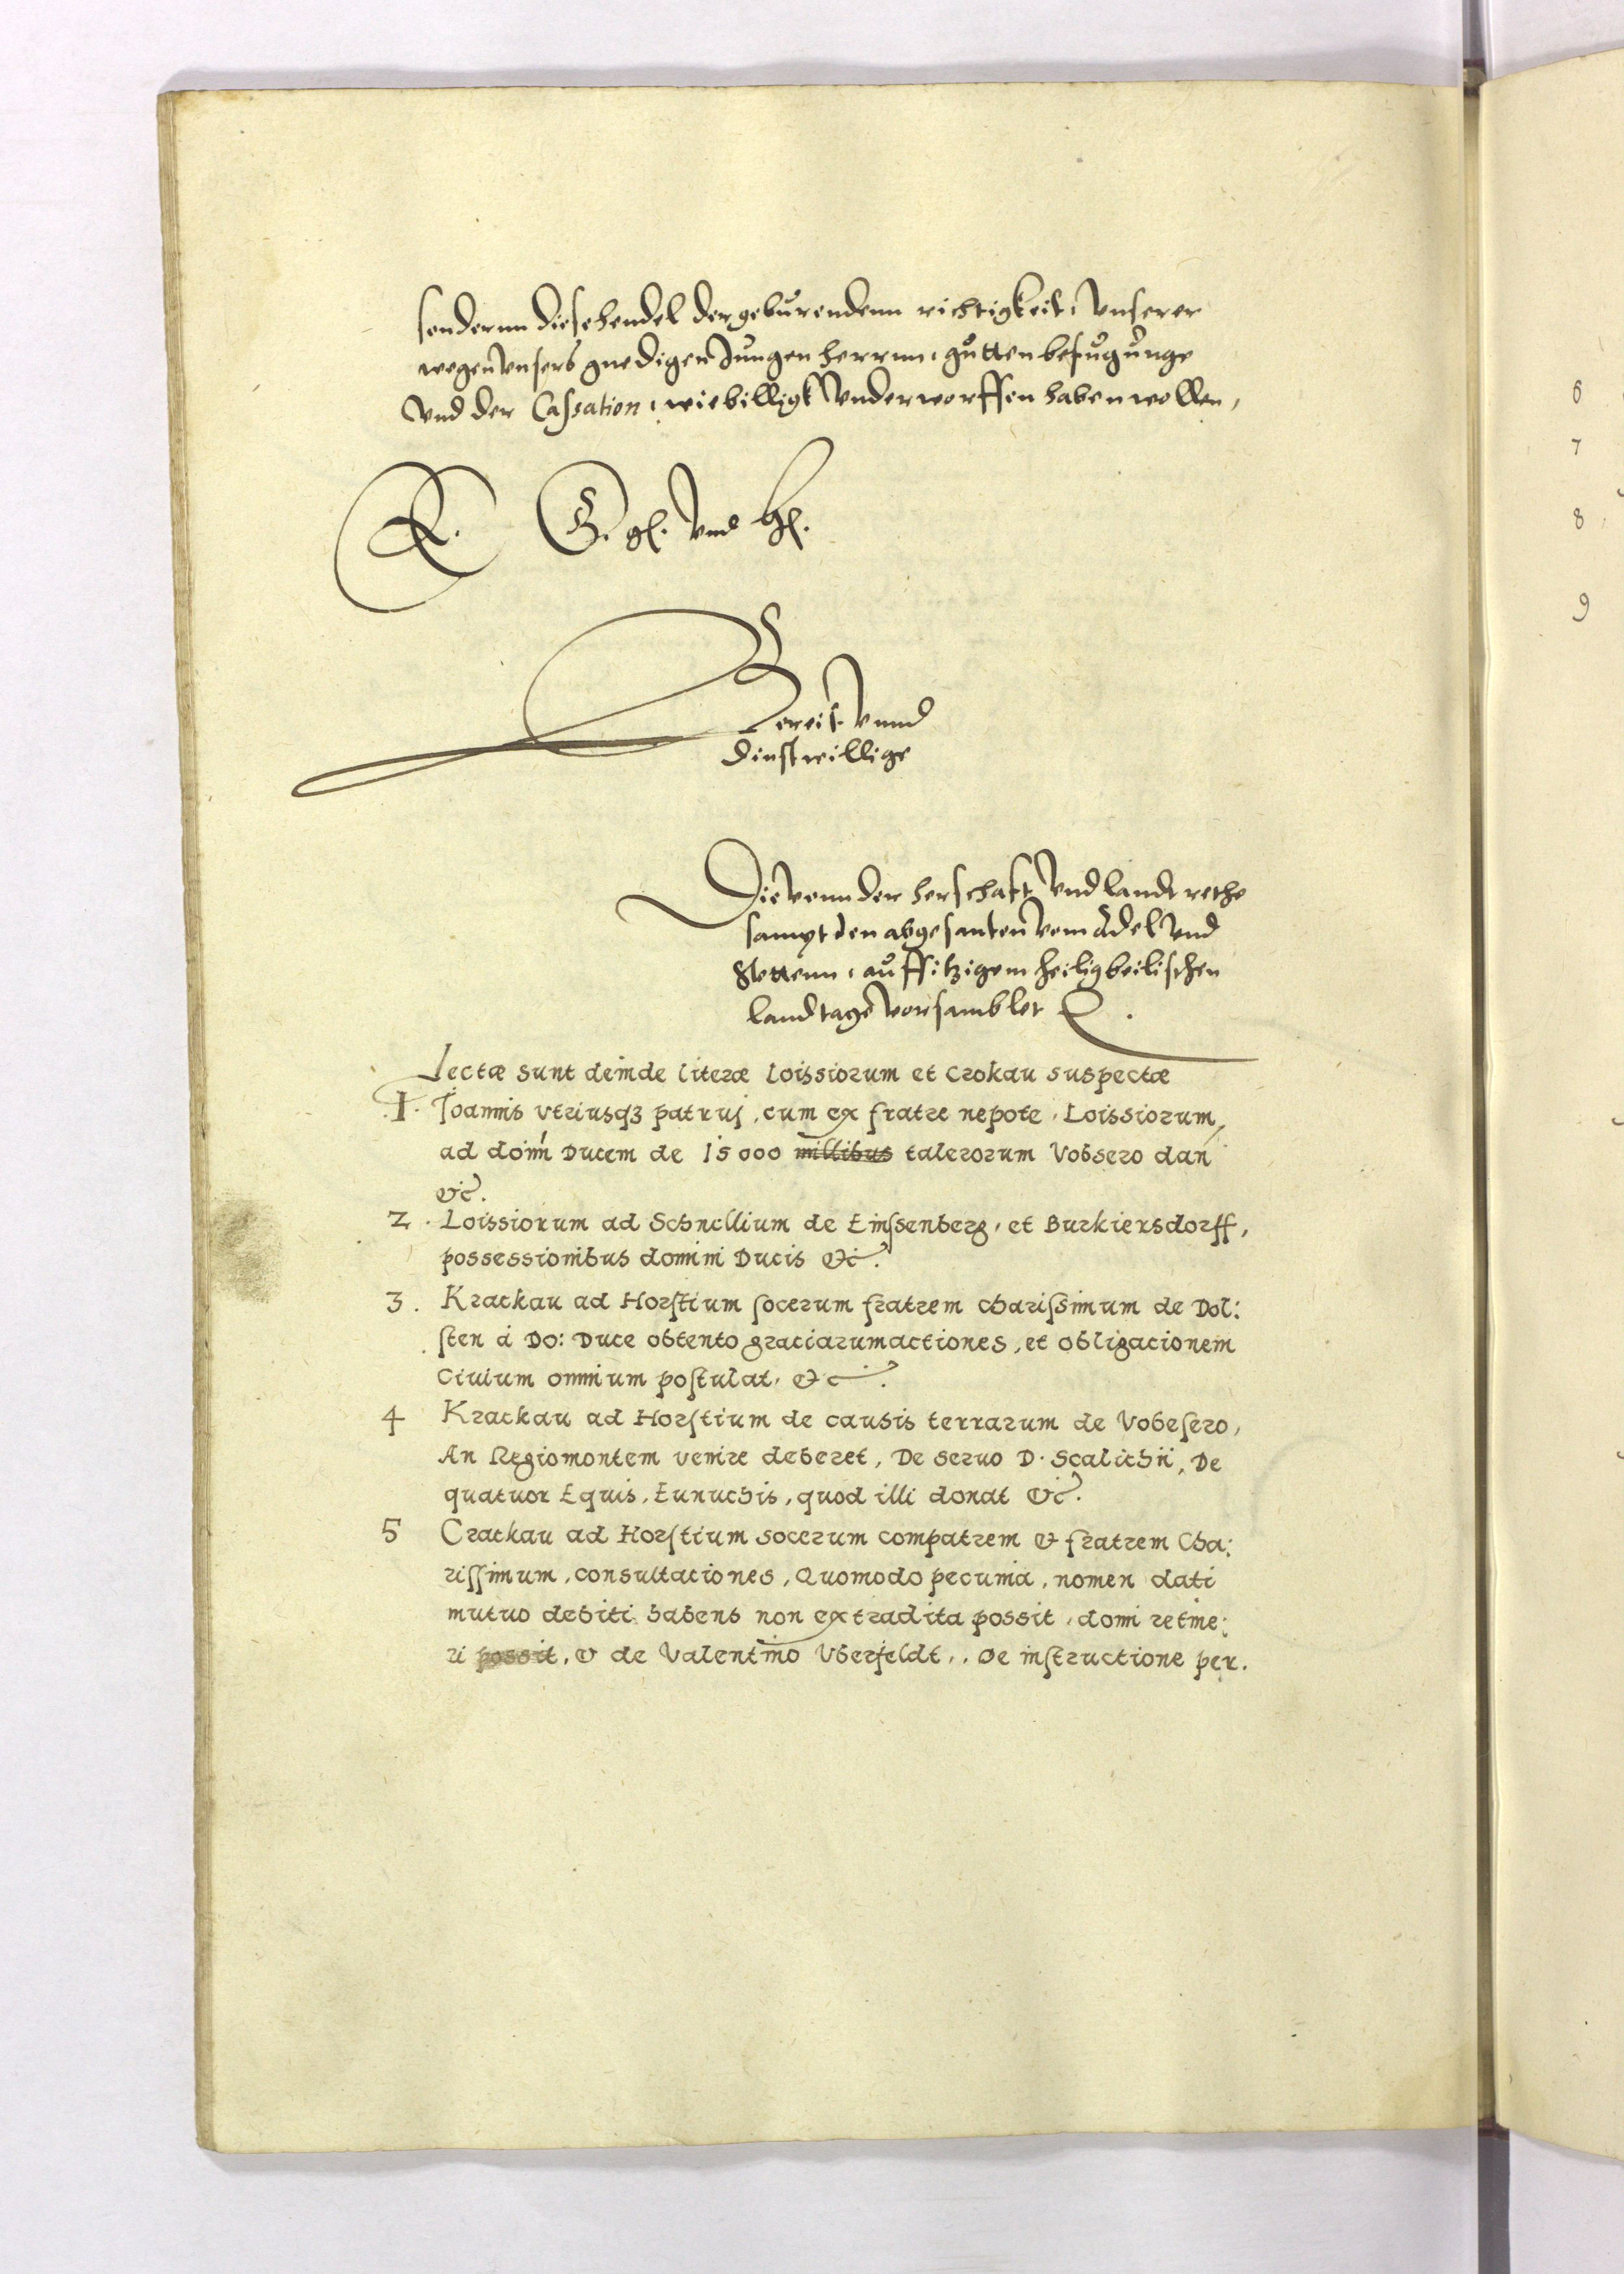 sondernn diese hendel der geburendenn richtigkeit, unserer
wegen unsers gnedigen Jungen herrnn, gutten befugunge
Vnd der Cassation, wie billigk Underworffen haben wollen,
E. G. gl. vnd hl.
Bereit vnnd
dinstwillige
Die vonn der herschaft Vnd landt rethe
sampt den abgesanten vom Adel Vnd
Stettenn, auff itzigem heiligbeilischen
landtage vorsamblet
Lectæ sunt deinde literæ Loissiorum et Crokau suspectæ
I. Joannis vtriusq3 patruj, cum ex fratre nepote, Loissiorum,
ad domi Ducem de 15000 millibus talerorum Vobsero dan
&c.
2. Loissiorum ad Schnellium de Einssenberg, et Burkiersdorff,
possessionibus domini Ducis &c.
3. Krackau ad Horstium socerum fratrem charissimum de Dol:
sten á Do: Duce obtento graciarumactiones, et obligacionem
Ciuium omnium postulat, &c.
4 Krackau ad Horstium de causis terrarum de Vobesero,
An Regiomontem venire deberet, De seruo D. Scalichii, De
quatuor Equis, Eunuchis, quod illi donat &c.
5 Crackau ad Horstium socerum compatrem & fratrem Cha:
rissimum, consultaciones, Quomodo pecunia, nomen dati
mutuo debiti habens non extradita possit, domi retine:
ri possit, & de Valentino Vberfeldt,. De instructione per.
6
7
8
9